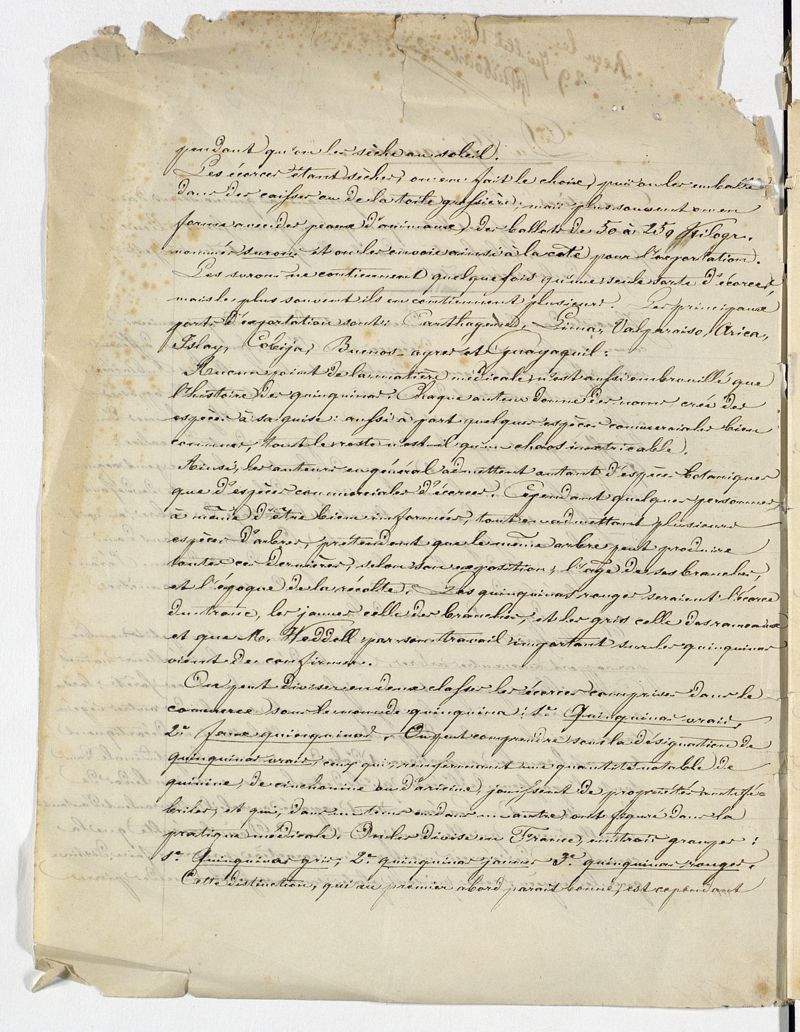 pendant qu'on les sèche au soleil.
Les écorces étant sèches, on en fait le choix, puis on les emballe
dans des caisses ou de la toile grossière; mais plus souvent on en
forme avec des peaux d'animaux, des ballots de 50 à 250 Kilogr.
nommés surons et on les envoie ainsi à la côte pour l'exportation.
Les surons ne contiennent quelquefois qu'une seule sorte d'écorces,
mais le plus souvent ils en contiennent plusieurs. Les principaux
ports d'exportation sont: Carthagène, Lima, Valparaiso, Arica,
Islay, Cobija, Buenos-ayres et Guayaquil.
Aucun point de la matière médicale, n'est aussi embrouillé que
l'histoire des quinquinas. Chaque auteur donne des noms, crée des
espèces à sa guise: aussi à part quelques espèces commerciales bien
connues, tout le reste n'est-il qu'un chaos inextricable.
Ainsi, les auteurs en général admettent autant d'espèces botaniques
que d'espèces commerciales d'écorces. Cependant quelques personnes
à même d'être bien informées, tout en admettant plusieurs
espèces d'arbres, prétendent que le même arbre peut produire
toutes ces dernières, selon son exposition, l'age de ses branches,
et l'époque de la récolte. Les quinquinas rouges seraient l'écorce
du tronc, les jaunes celle des branches, et les gris celle des rameaux
et que M. Weddell par son travail important sur les quinquinas
vient de confirmer.
On peut diviser en deux classes les écorces comprises dans le
commerce sous le nom de quinquina: 1º Quinquinas vrais,
2º faux quinquinas. On peut comprendre sous la désignation de
quinquinas vrais, ceux qui renfermant une quantité notable de
quinine, de cinchonine ou d'aricine, jouissent de propriétés antifé-
briles, et qui, dans un tems ou dans un autre, ont figuré dans la
pratique médicale. On les divise en France, en trois groupes:
1º Quinquinas gris, 2º quinquinas jaunes 3º quinquinas rouges.
Cette distinction, qui au premier abord parait bonne, est cependant